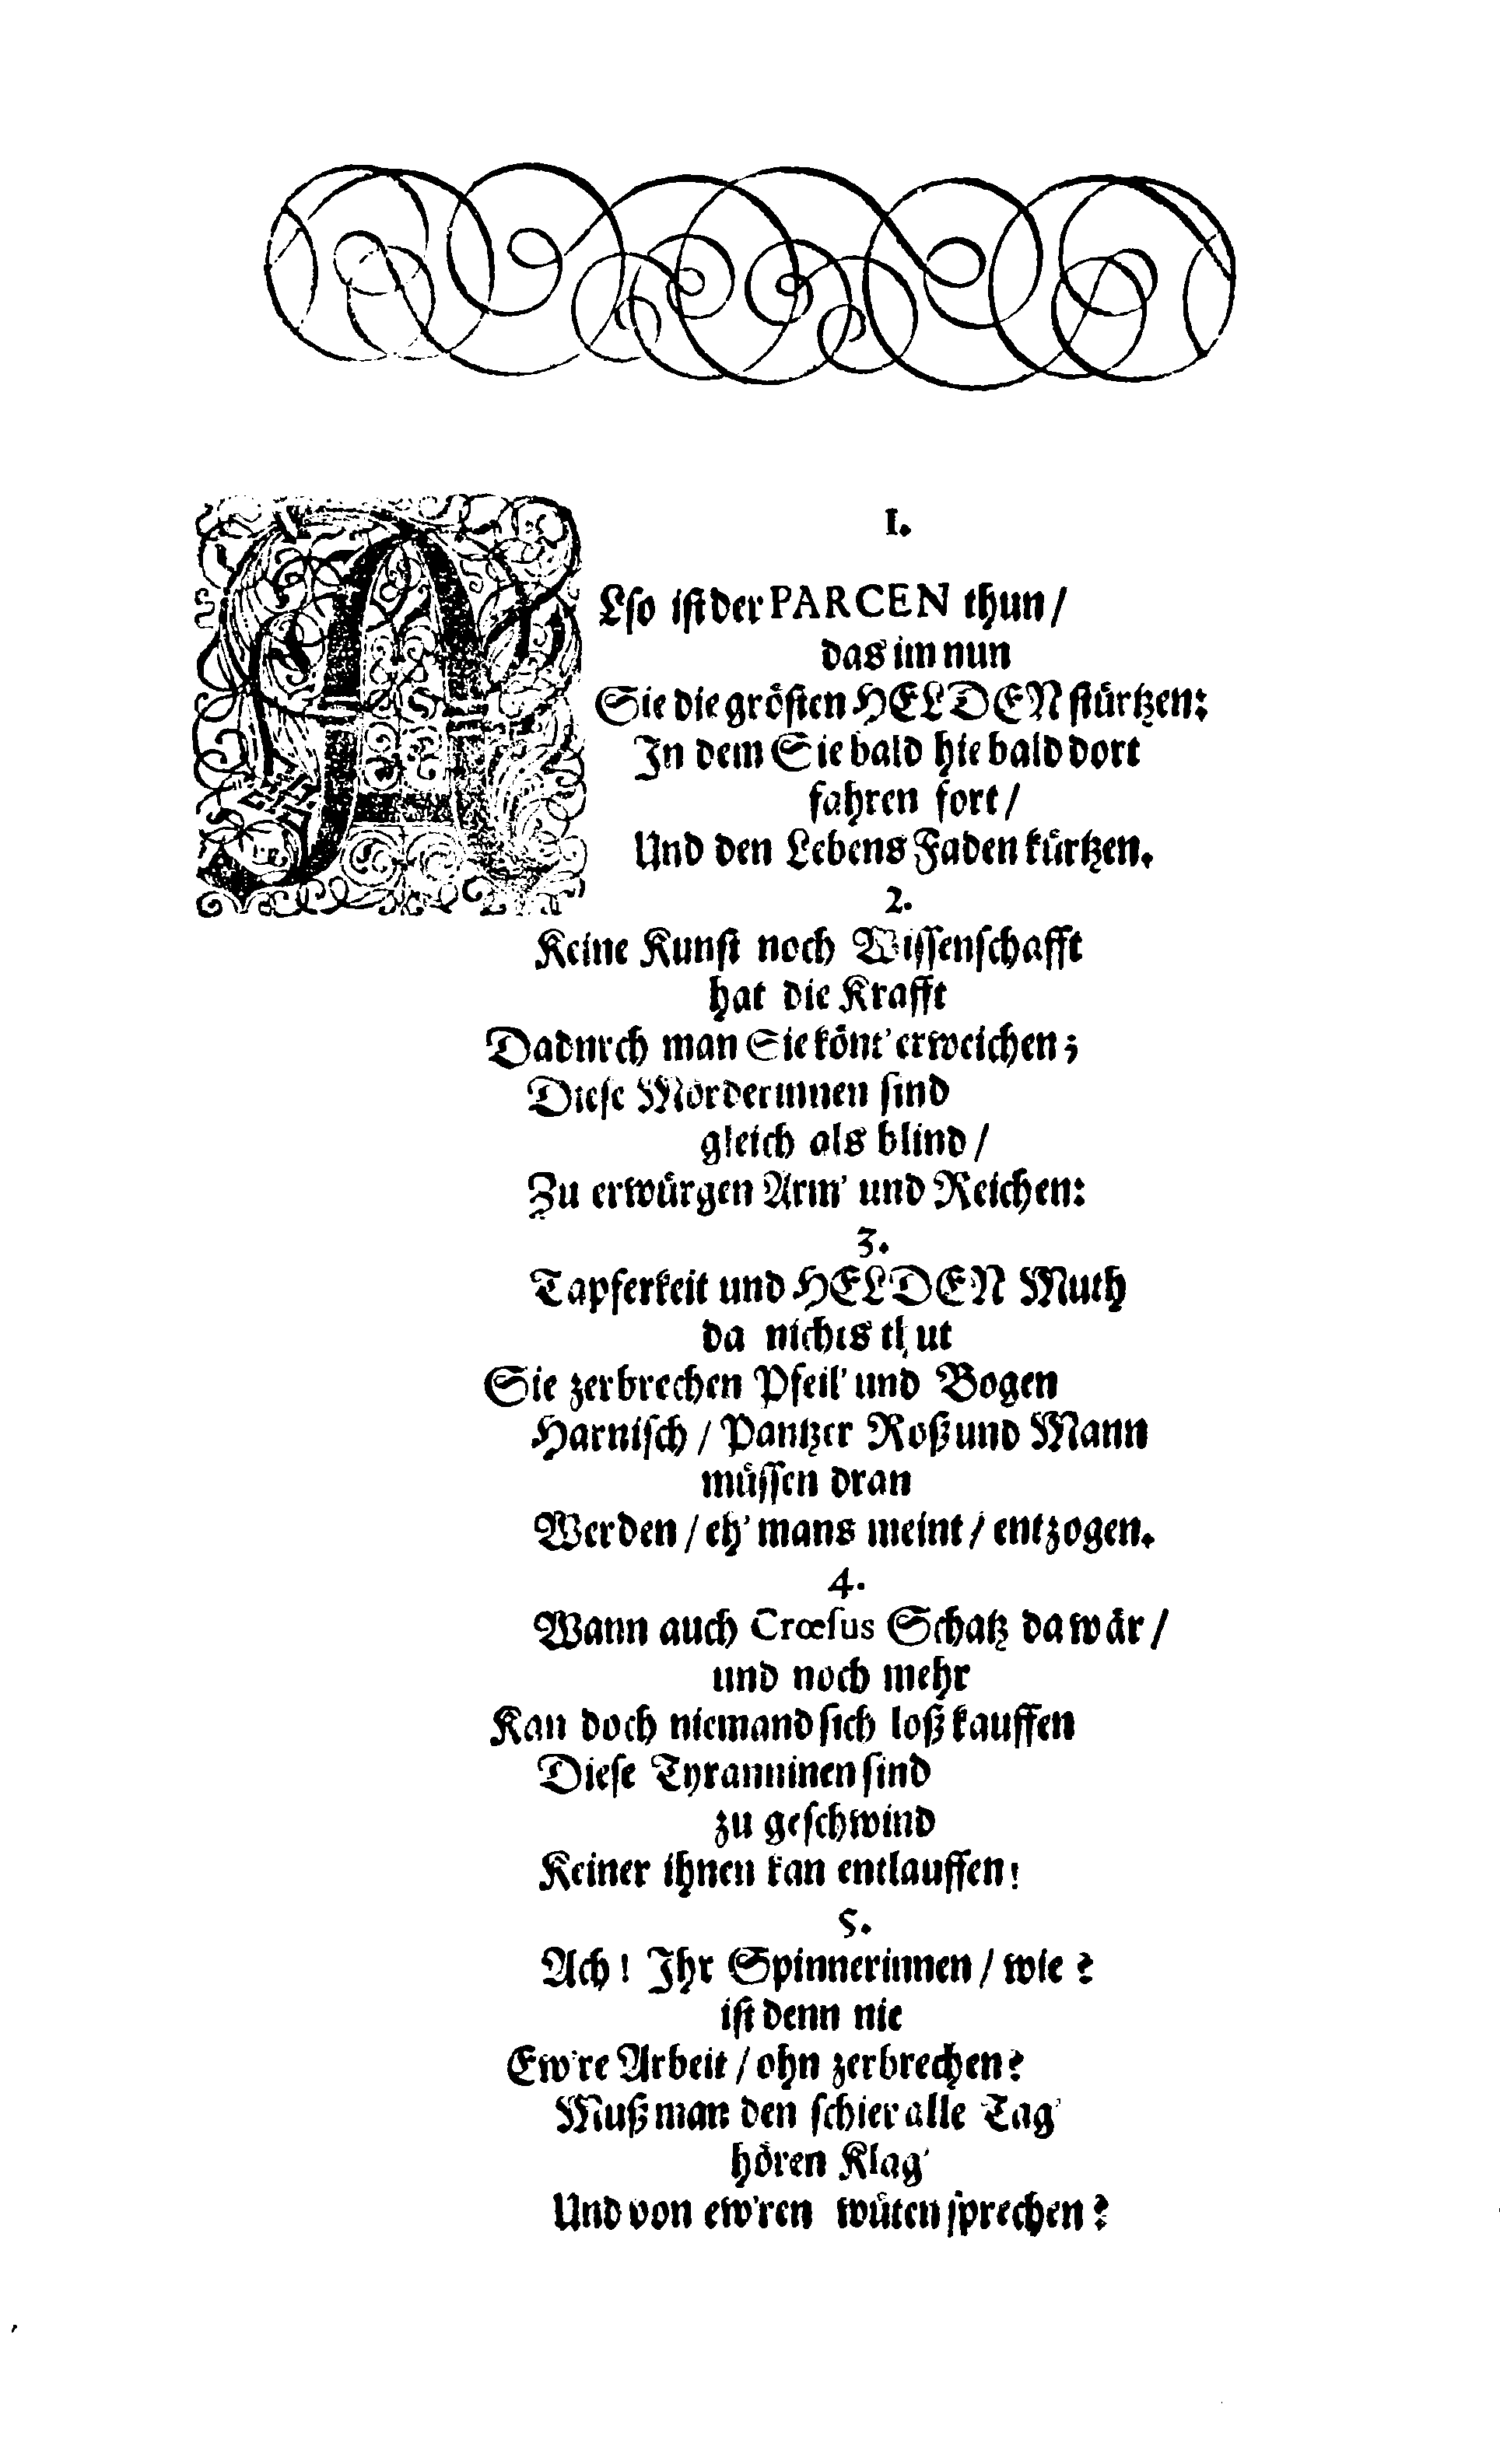 1.
ALso ist der PARCEN thun /
das im nun
Sie die grösten HELDEN stürtzen:
In dem Sie bald hie bald dort
fahren fort /
Und den Lebens Faden kürtzen.
2.
Keine Kunst noch Wissenschafft
hat die Krafft
Dadnrch man Sie könt' erweichen;
Diese Mörderinnen sind
gleich als blind /
Zu erwürgen Arm' und Reichen:
3.
Tapferkeit und HELDEN Muth
da nichts thut
Sie zerbrechen Pfeil' und Bogen
Harnisch / Pantzer Roß und Mann
müssen dran
Werden / eh' mans meint / entzogen.
4.
Wann auch Crœsus Schatz da wär /
und noch mehr
Kan doch niemand sich loß kauffen
Diese Tyranninen sind
zu geschwind
Keiner ihnen kan entlauffen!
5.
Ach! Ihr Spinnerinnen / wie?
ist denn nie
Ew're Arbeit / ohn zerbrechen?
Muß man den schier alle Tag'
hören Klag'
Und von ew'ren wüten sprechen?